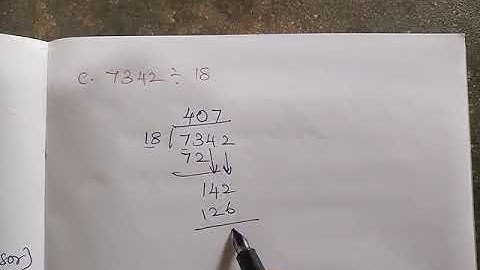 c. 7342 ÷ 18
407
18 7342
72
142
126